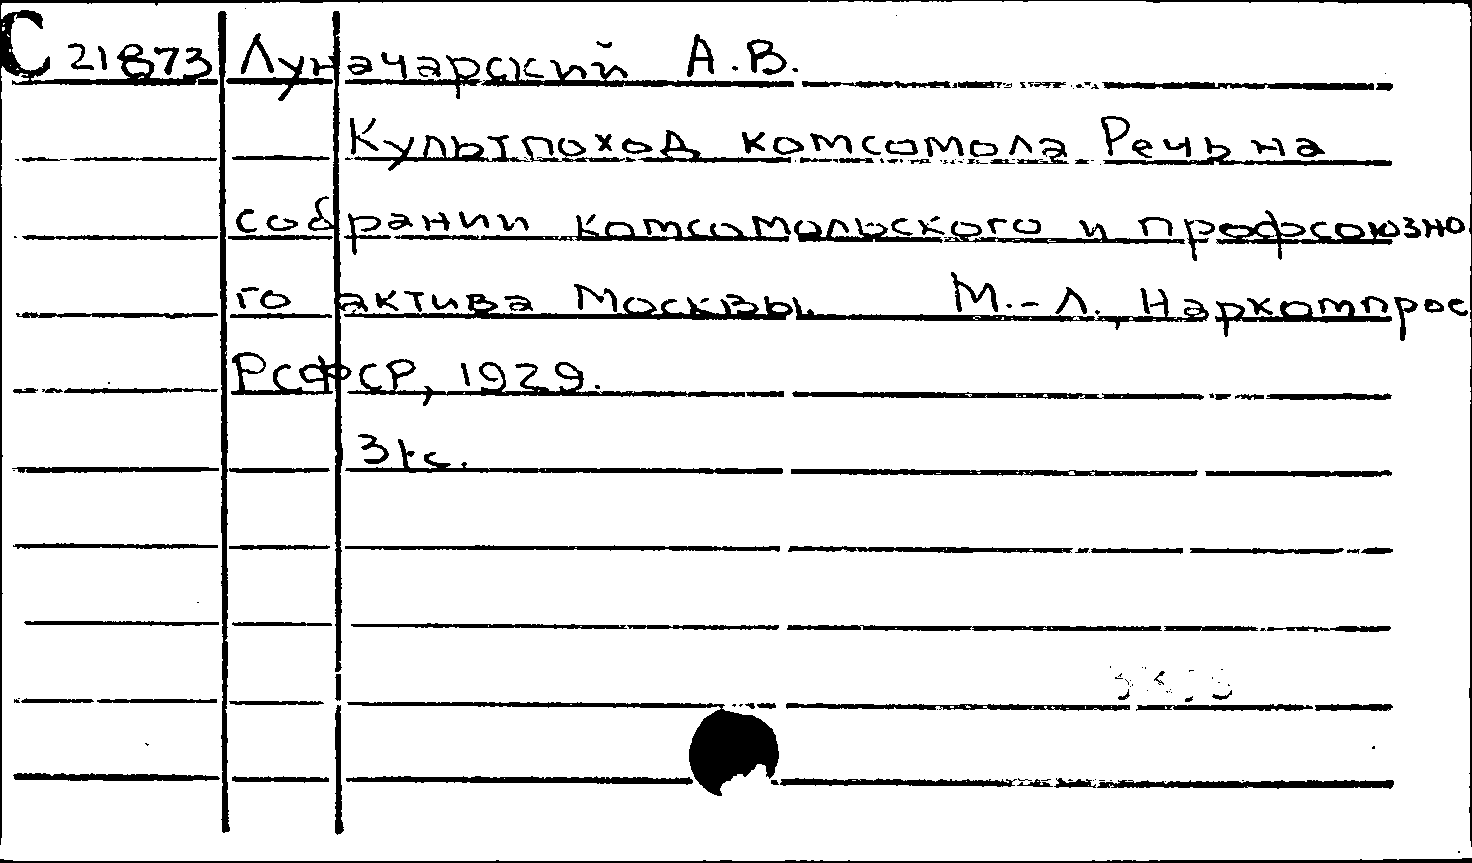 С 21873 Луначарский А.В.
Культпоход комсомола Речь на
собрании комсомольского и профсоюзно
го актива Москвы. М.-Л., Наркомпрос
РСФСР, 1929.
31с.